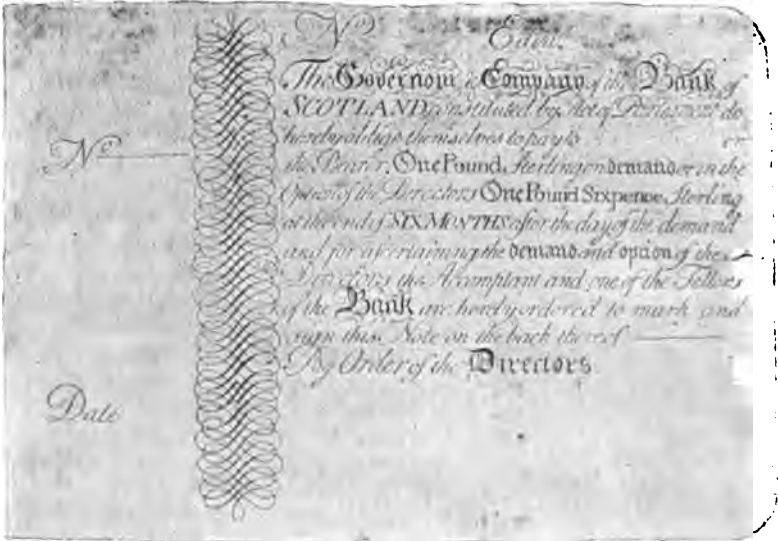 No Edinr.
The Governour & Company of the Bank of
SCOTLAND constituted by Act of Parliament do
hereby oblige themselves to pay to or
No
the Bearer, One Pound Sterling on demand or in the
Option of the Directors One Pound Sixpence Sterling
at the end of SIX MONTHS after the day of the demand
and for ascertaining the demand and option of the
Directors the Accomptant and one of the Tellers
of the Bank are hereby ordered to mark and
sign this Note on the back thereof
By Order of the Directors
Date